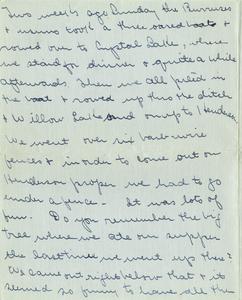 Two weeks ago Sunday the
+ us took a three oared boat +
rowed over to Crystal Lake, where
we stayed for dinner + quite a while
afterwards. Then we all piled in
the boat + rowed up thru the ditch
+ Willow Lake and on up to
We went over six barb-wire
fences + in order to come out on
Henderson proper we had to go
under a fence. It was lots of
fun. Do you remember the big
tree where we ate our supper
the last time we went up there?
We came out right below that + it
seemed so funny to have all the